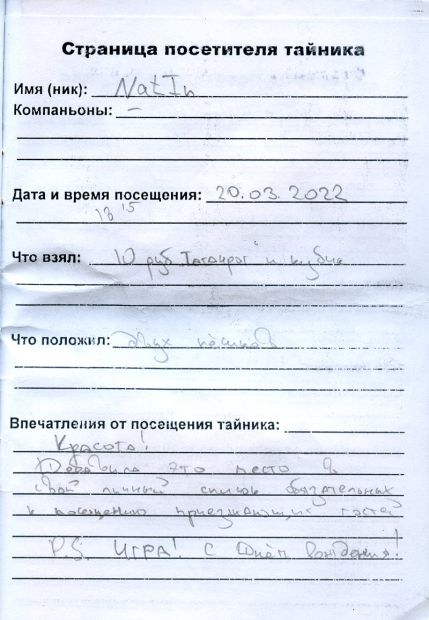 Страница посетителя тайника
Имя (ник): NatIn
Компаньоны: –
Дата и время посещения: 20.03.2022
13 15
Что взял: 10 руб "Таганрог" и кубик
Что положил: двух
Впечатления от посещения тайника:
Красота!
Добавила это место в
свой личный список обязательных
к посещению приезжающих гостей
P.S. ИГРА! С Днём Рождения!